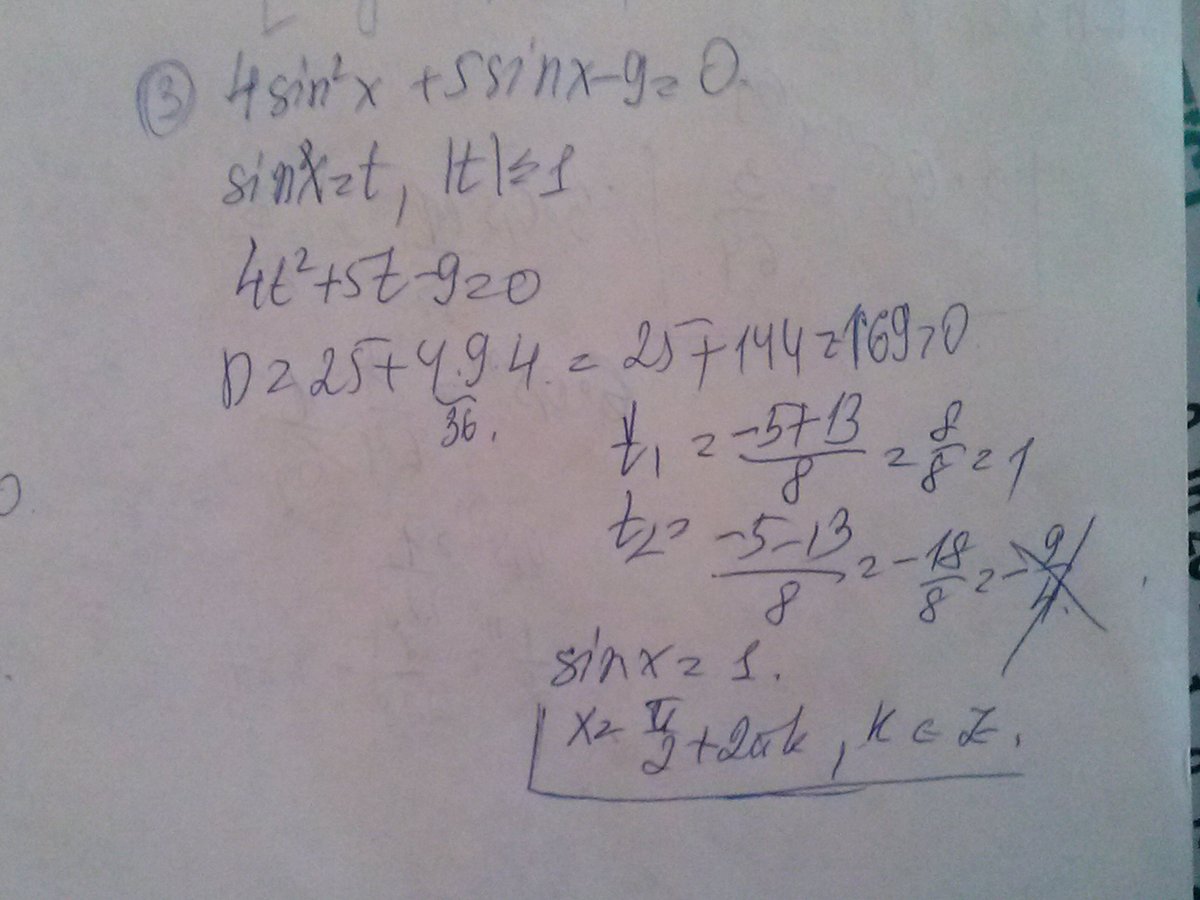 ③ 4sin²x + 5sinx - 9 = 0.
sinx = t, |t| ≤ 1
4t² + 5t - 9 = 0
D = 25 + 4·9·4 = 25 + 144 = 169 > 0
36.
t₁ = (-5+13)/8 = 8/8 = 1
t₂ = (-5-13)/8 = -18/8 = -9/4.
sinx = 1.
x = π/2 + 2πk, k ∈ Z.